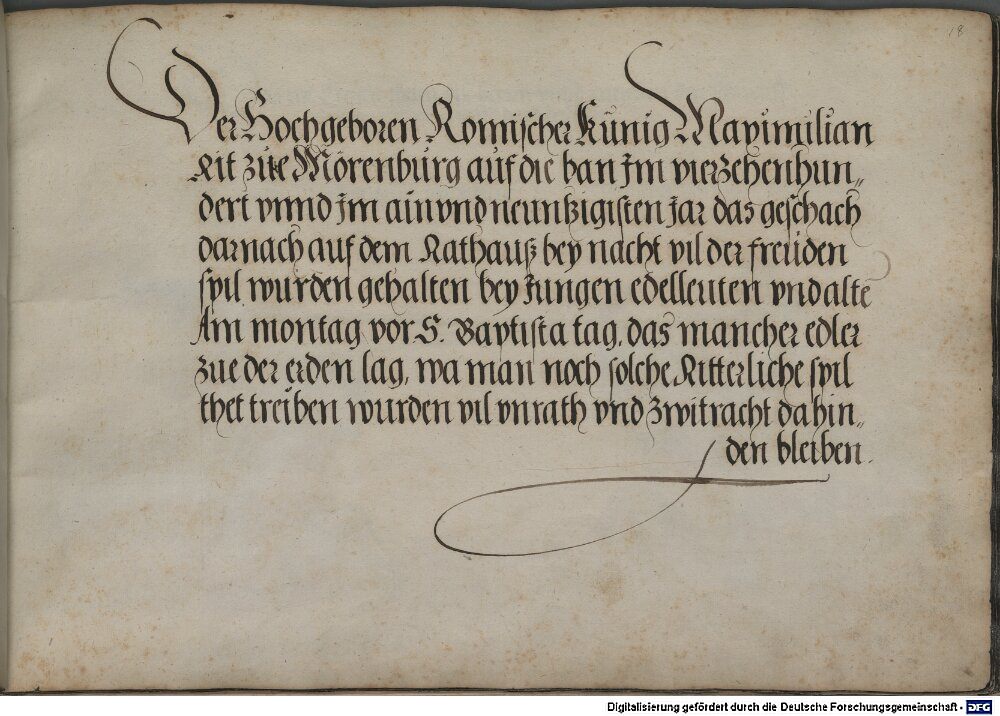 18
Der Hochgeboren Romischer Künig Maximilian
Rit zue Mörenburg auf die ban Jm vierzehenhun„
dert vnnd Jm ain vnd neunßzigisten Jar das geschach
darnach auf dem Rathauß bey nacht vil der freüden
spil wurden gehalten bey Jungen edelleuten vnd alte
Am montag vor S. Baptista tag, das mancher edler
zue der erden lag, wa man noch solche Ritterliche spil
thet treiben wurden vil vnrath vnd zwitracht dahin„
den bleiben.
Digitalisierung gefördert durch die Deutsche Forschungsgemeinschaft - DFG